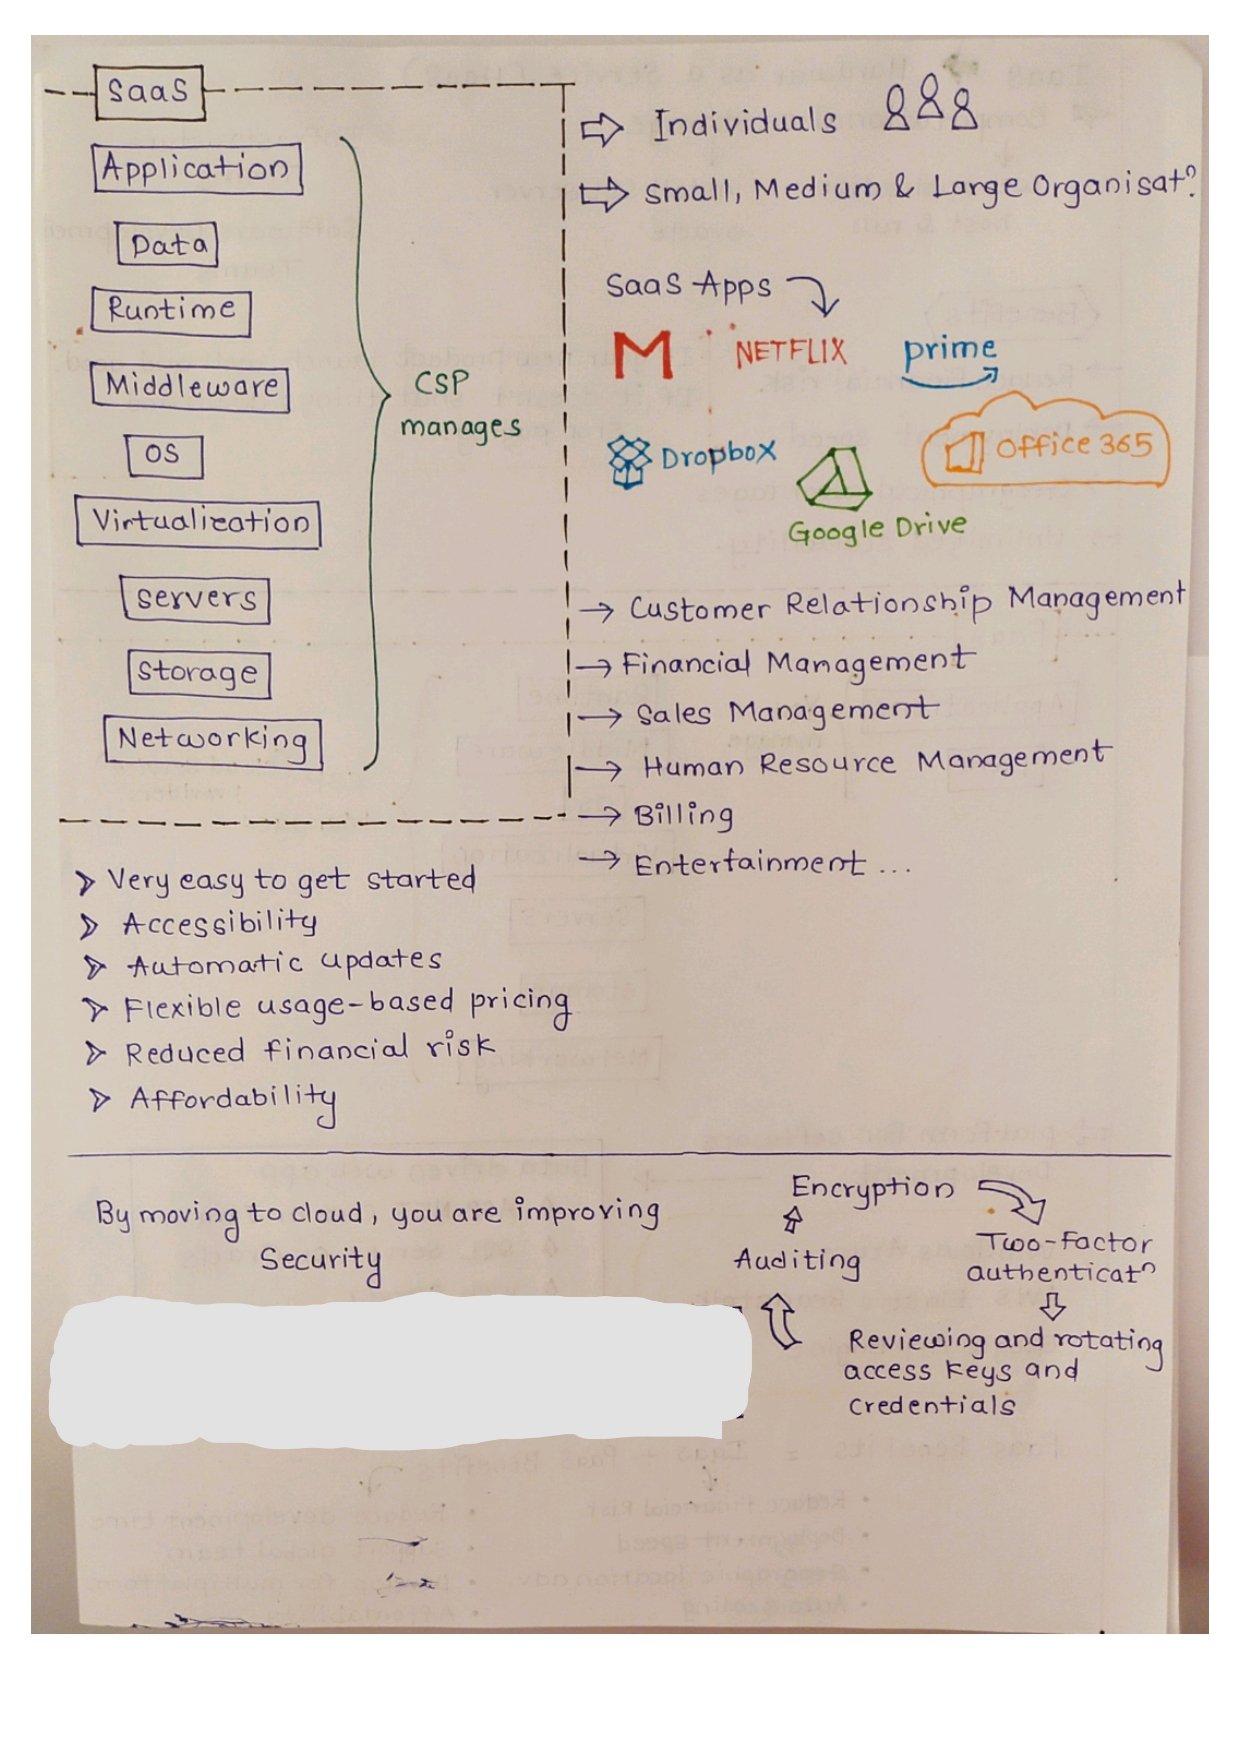 SaaS
Application
Data
Runtime
Middleware
OS
Virtualization
Servers
Storage
Networking
CSP
manages
Individuals
Small, Medium & Large Organisatⁿ
SaaS Apps
M NETFLIX prime
Dropbox
Office 365
Google Drive
→ Customer Relationship Management
→ Financial Management
→ Sales Management
→ Human Resource Management
→ Billing
→ Entertainment ...
Very easy to get started
Accessibility
Automatic updates
Flexible usage-based pricing
Reduced financial risk
Affordability
By moving to cloud, you are improving
Security
Encryption
Two-factor
authenticatⁿ
Reviewing and rotating
access keys and
credentials
Auditing